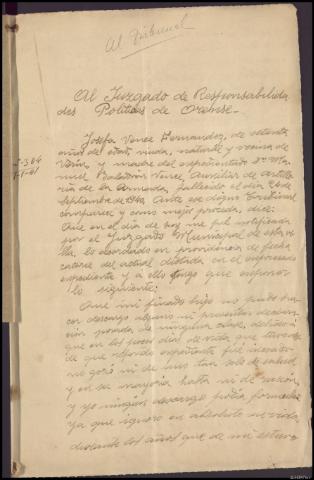 Al Tribunal
Al Juzgado de Responsabilida
des Politicas de Orense.-
Josefa Vence Fernandez, de setenta
años de edad, viuda, natural y vecina de
Verin, y madre del expedientado D. Ma
nuel Baladrón Vence, Auxiliar de artille
ria de la Armada, fallecido el dia 26 de
Septiembre de 1940. Ante ese digno Tribunal
comparece y como mejor proceda, dice:
Que en el dia de hoy me fue notificada
por el Juzgado Municipal de esta vi
lla, lo acordado en providencia de fecha
catorce del actual dictada en el expresado
expediente y a ello tengo que exponer
lo siguiente:
Que mi finado hijo no pudo ha
cer descargo alguno ni presentar declara
ción jurada de ninguna clase, debido a
que en los pocos dias de vida, que
de que
no gozó ni de uno tan solo de salud
y en su mayoria hasta ni de razón,
y yo ningún descargo podia formular
ya que ignoro en absoluto su vida
durante los años que de mi estuvo